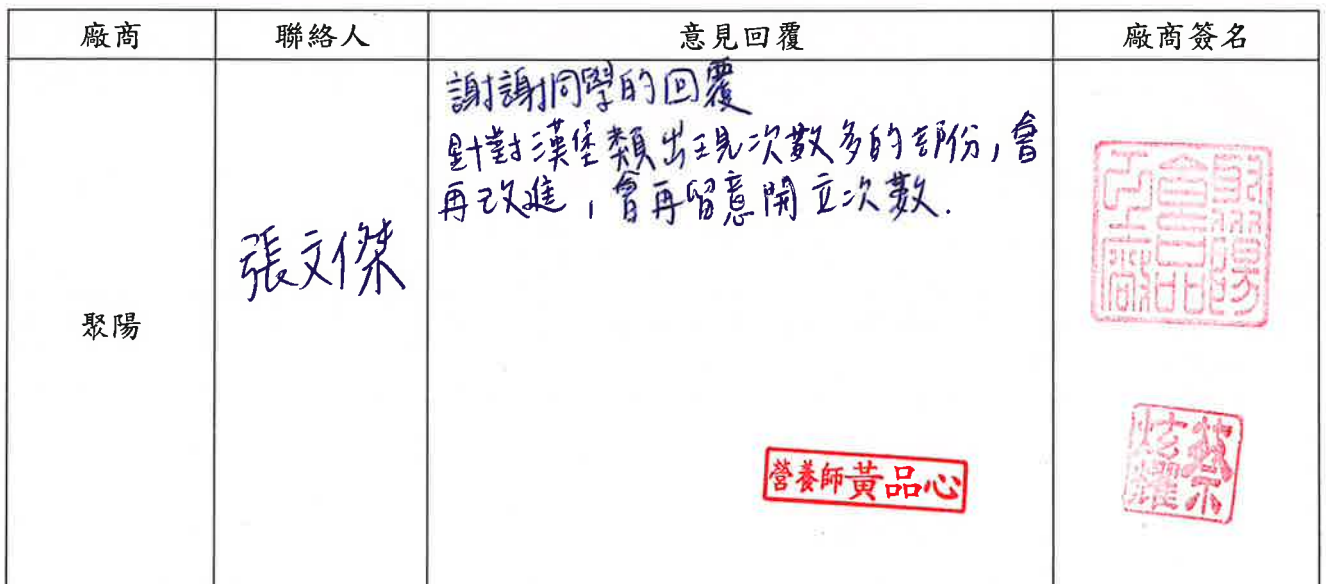 廠商 聯絡人 意見回覆 廠商簽名
聚陽
張文傑
謝謝同學的回覆
針對漢堡類出現次數多的部份,會
再改進,會再留意開立次數.
營養師黃品心
聚陽
食品
工廠
蔡
炫耀